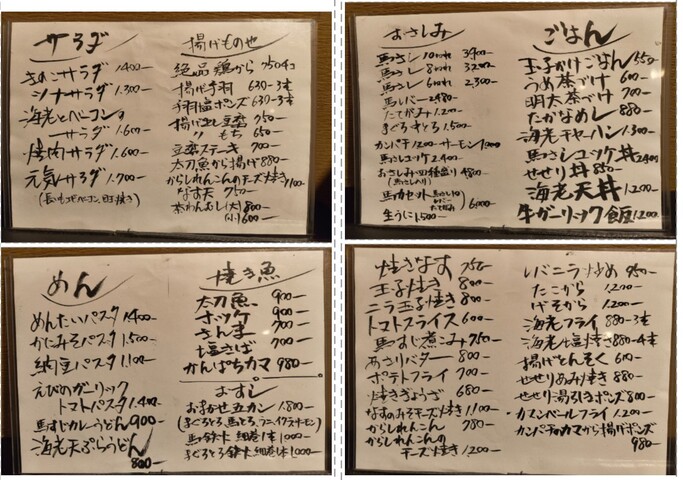 サラダ
きのこサラダ 1.400ー
シナサラダ 1.300ー
海老とベーコンの
サラダ 1.600ー
焼肉サラダ 1.600ー
元気サラダ 1.700ー
揚げもの他
絶品鶏から 750 4コ
揚げ手羽 630-3本
手羽塩ポンズ 630-3本
揚げ出し豆腐 750ー
〃 もち 650ー
豆腐ステーキ 700ー
太刀魚から揚げ 880ー
からしれんこんのチーズ焼き 1100
なす天 750ー
茶わんむし(大) 800ー
(小) 600ー
おさしみ
馬さし 10切れ 3900ー
馬さし 8切れ 3200ー
馬さし 6切れ 2.300ー
馬レバー 2.980ー
たてがみ 1.200ー
まぐろすとろ 1.500ー
カンパチ 1200ー サーモン 1000
馬さしユッケ 2.400ー
おさしみ四種盛り 4800ー
(馬さし入り)
馬力セット 6.000ー
生うに 1.500ー
ごはん
玉子かけごはん 550ー
うめ茶づけ 600ー
明太茶づけ 700ー
たかなめし 880ー
海老チャーハン 1.300ー
馬さしユッケ丼 2400ー
せせり丼 850ー
海老天丼 1.200ー
牛ガーリック飯 1200ー
めん
めんたいパスタ 1.400ー
かにみそパスタ 1.500ー
納豆パスタ 1.100ー
えびのガーリック
トマトパスタ 1.400ー
馬すじカレーうどん 900ー
海老天ぷらうどん
800ー
焼き魚
太刀魚 900ー
ホッケ 900ー
さんま 700ー
塩さば 700ー
かんぱちカマ 980ー
おすし
おまかせ五カン 1.800ー
馬鉄火 細巻1本 1000ー
まぐろとろ鉄火 細巻1本 1000ー
焼きなす 750ー
玉子焼き 800ー
ニラ玉子焼き 800ー
トマトスライス 600ー
馬すじ煮こみ 750ー
あさりバター 800ー
ポテトフライ 700ー
焼きぎょうざ 680ー
なすのみそチーズ焼き 1.100ー
からしれんこん 780ー
からしれんこんの
チーズ焼き 1.200ー
レバニラ炒め 950ー
たこから 1.200ー
げそから 1.200ー
海老フライ 880-3本
海老塩焼き 880-4本
揚げとんそく 600ー
せせりぬみ焼き 880ー
せせり湯引きポンズ 800ー
カマンベールフライ 1.200ー
カンパチのカマから揚げポンズ
980ー